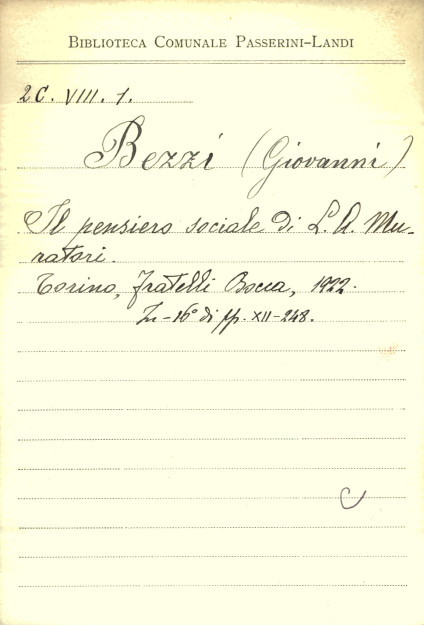 BIBLIOTECA COMUNALE PASSERINI-LANDI
2C. VIII. 1.
Bezzi (Giovanni)
Il pensiero sociale di L. A. Mu-
ratori.
Torino, Fratelli Bocca, 1922.
In-16° di pp. XII-248.
C